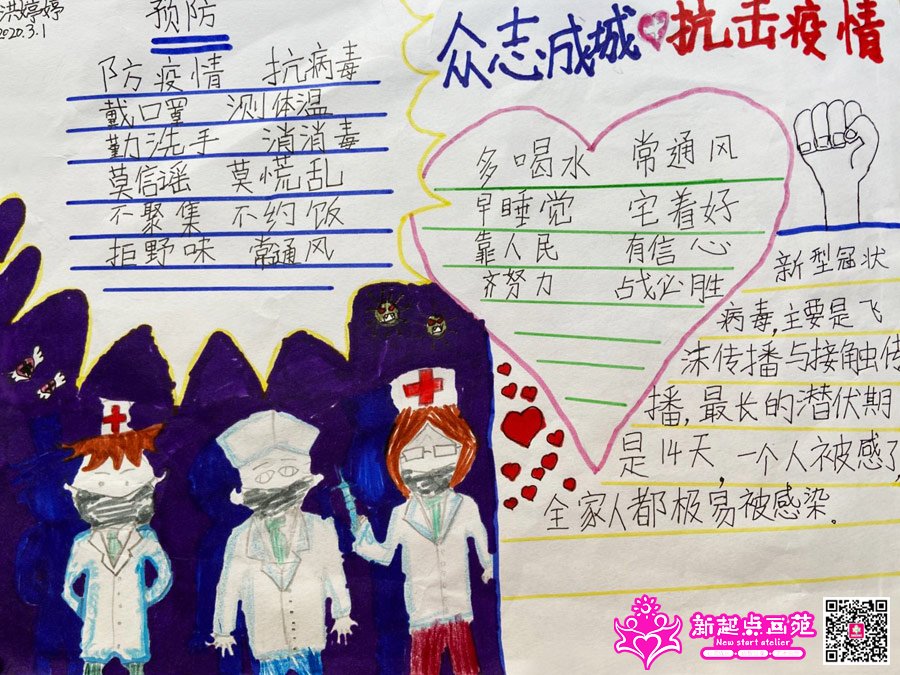 洪婷婷
2020.3.1
预防
防疫情 抗病毒
戴口罩 测体温
勤洗手 消消毒
莫信谣 莫慌乱
不聚集 不约饭
拒野味 常通风
众志成城 抗击疫情
多喝水 常通风
早睡觉 宅着好
靠人民 有信心
齐努力 战必胜
新型冠状
病毒,主要是飞
沫传播与接触传
播,最长的潜伏期
是14天,一个人被感了,
全家人都极易被感染.
新起点画苑
New start atelier